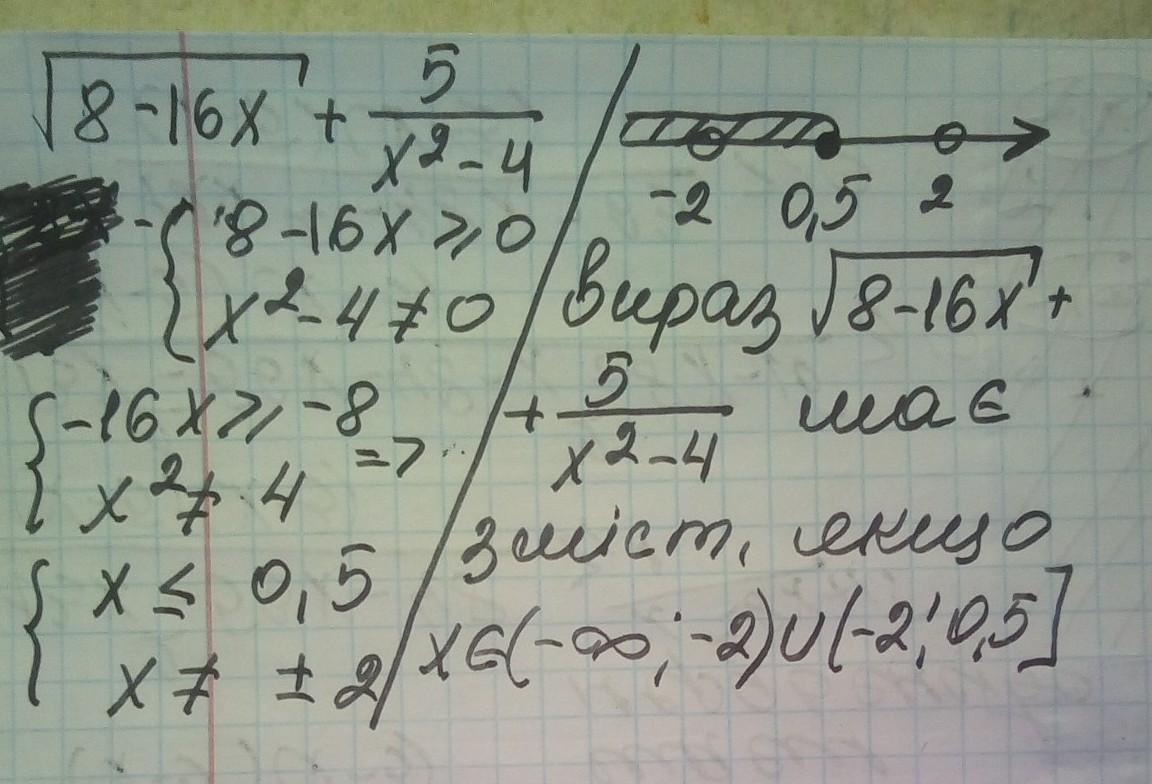 √8-16x + 5/(x²-4)
{ 8-16x ≥ 0
x²-4 ≠ 0
{ -16x ≥ -8
x² ≠ 4 =>
{ x ≤ 0,5
x ≠ ±2
-2 0,5 2
вираз √8-16x +
+ 5/(x²-4) має
зміст, якщо
x∈(-∞;-2)∪(-2;0,5]